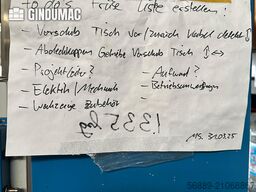 GINDUMAC
To do's Fräse Liste erstellen:
- Vorschub Tisch vor/zurück Kabel defekt
- Abdeckkappen Getriebe Vorschub Tisch ↕ ↔
- Projektleiter?
- Aufwand?
- Elektrik/Mechanik
- Betriebsanweisungen
- Werkzeuge Zubehör
1335 kg
MS. 31.03.25